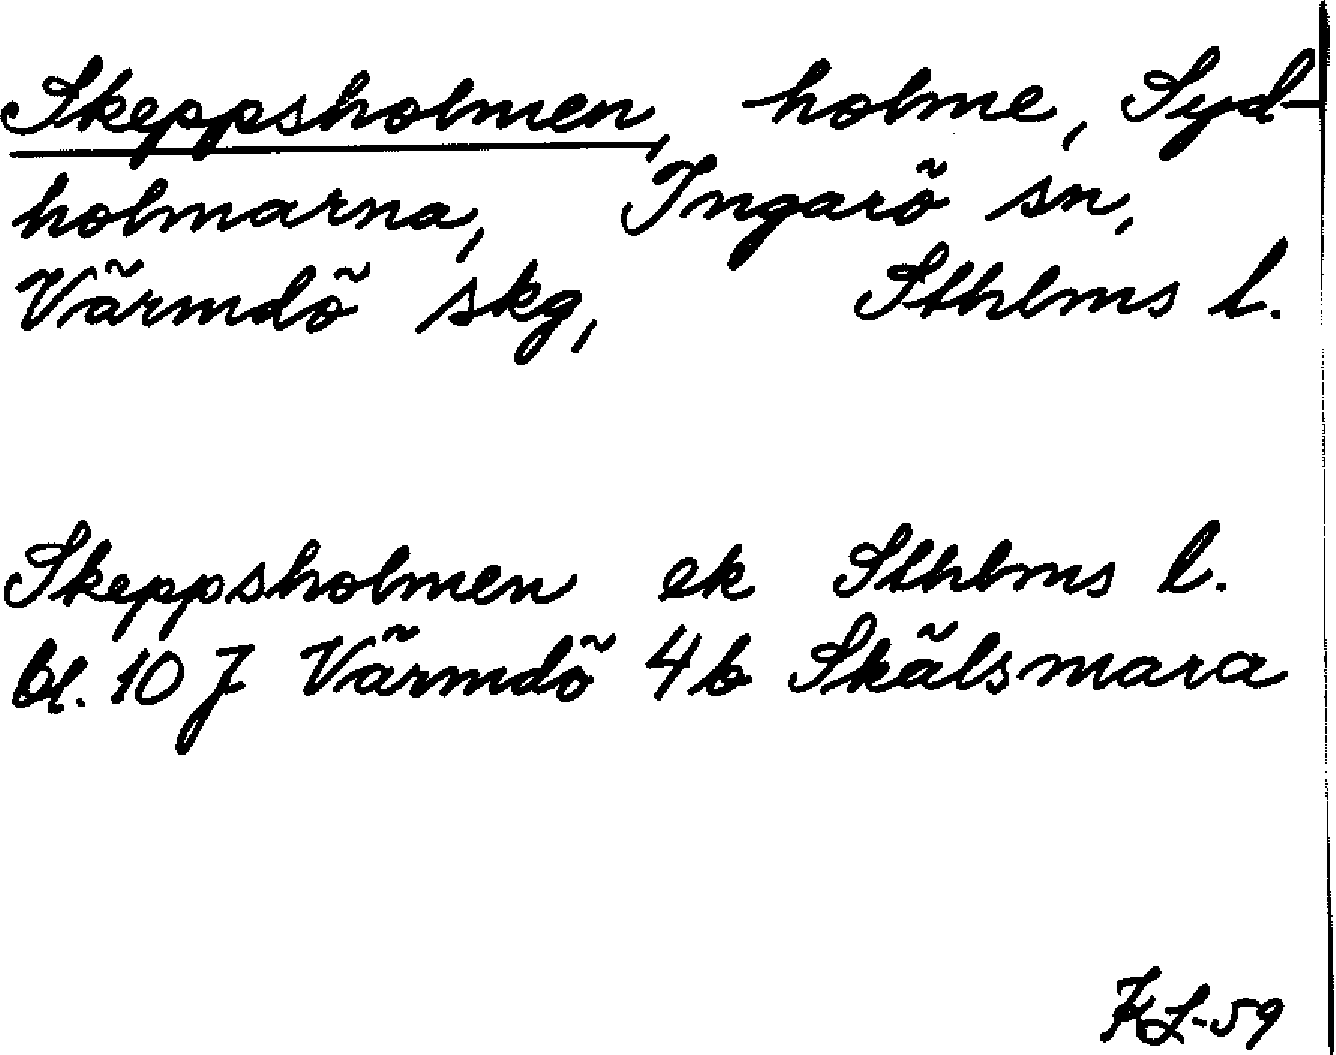 Skeppsholmen, holme, Syd-
holmarna, Ingarö sn,
Värmdö skg, Sthlms l.
Skeppsholmen ek Sthlms l.
bl. 10 J Värmdö 4b Skälsmara
KL-59